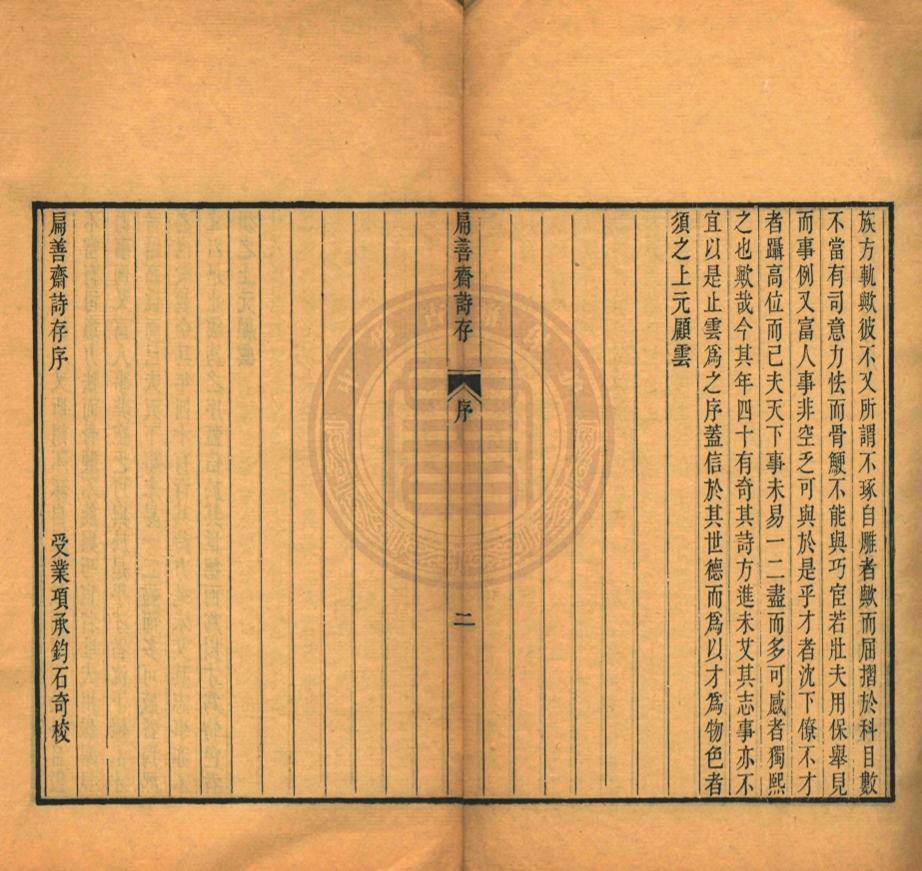 族方軌歟彼不乂所謂不琢自雕者歟而屈摺於科目數
不當有司意力怯而骨鯁不能與巧宦若壯夫用保舉見
而事例又富人事非空乏可與於是乎才者沈下僚不才
者躡高位而已夫天下事未易一二盡而多可慼者獨熙
之也歟哉今其年四十有奇其詩方進未艾其志事亦不
宜以是止雲爲之序蓋信於其世德而爲以才爲物色者
須之上元顧雲
扁善齋詩存
序
二
扁善齋詩存序
受業項承鈞石奇校